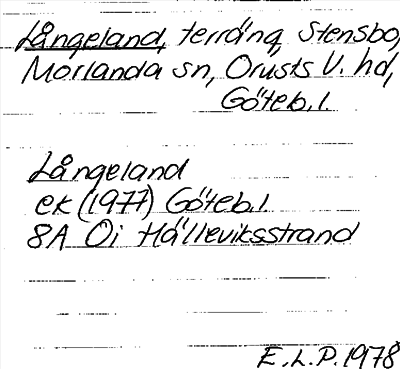 Långeland, terräng, Stensbo,
Morlanda sn, Orusts V. hd,
Göteb. l.
Långeland
ek (1977) Göteb. l
8A Öi Hälleviksstrand
E. L. P. 1978